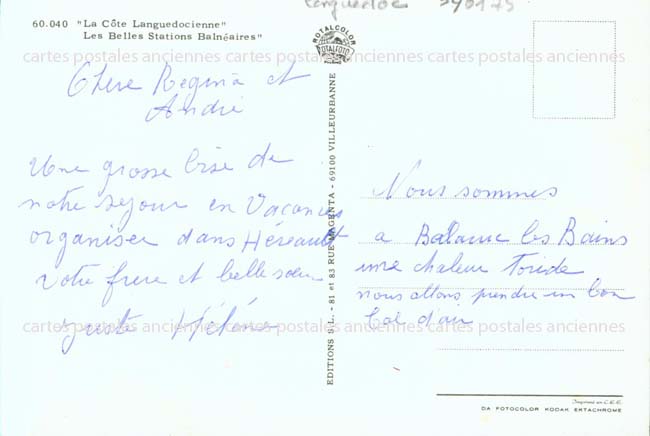 Languedoc 340175
60.040 "La Côte Languedocienne"
Les Belles Stations Balnéaires"
ROTALCOLOR
ROTALFOTO
cartes postales anciennes cartes postales anciennes cartes postales anciennes
Chere Regina et
André
Une grosse bise de
notre sejour en Vacances
organiser dans Héreault
votre frere et belle sœur
Hélène
EDITIONS S.L. - 81 et 83 RUE MAGENTA - 69100 VILLEURBANNE
Nous sommes
a Balaruc les Bains
une chaleur Toride
nous allons prendre un bon
bol d'air
cartes postales anciennes cartes postales anciennes cartes postales anciennes
Imprimé en C.E.E.
DA FOTOCOLOR KODAK EKTACHROME